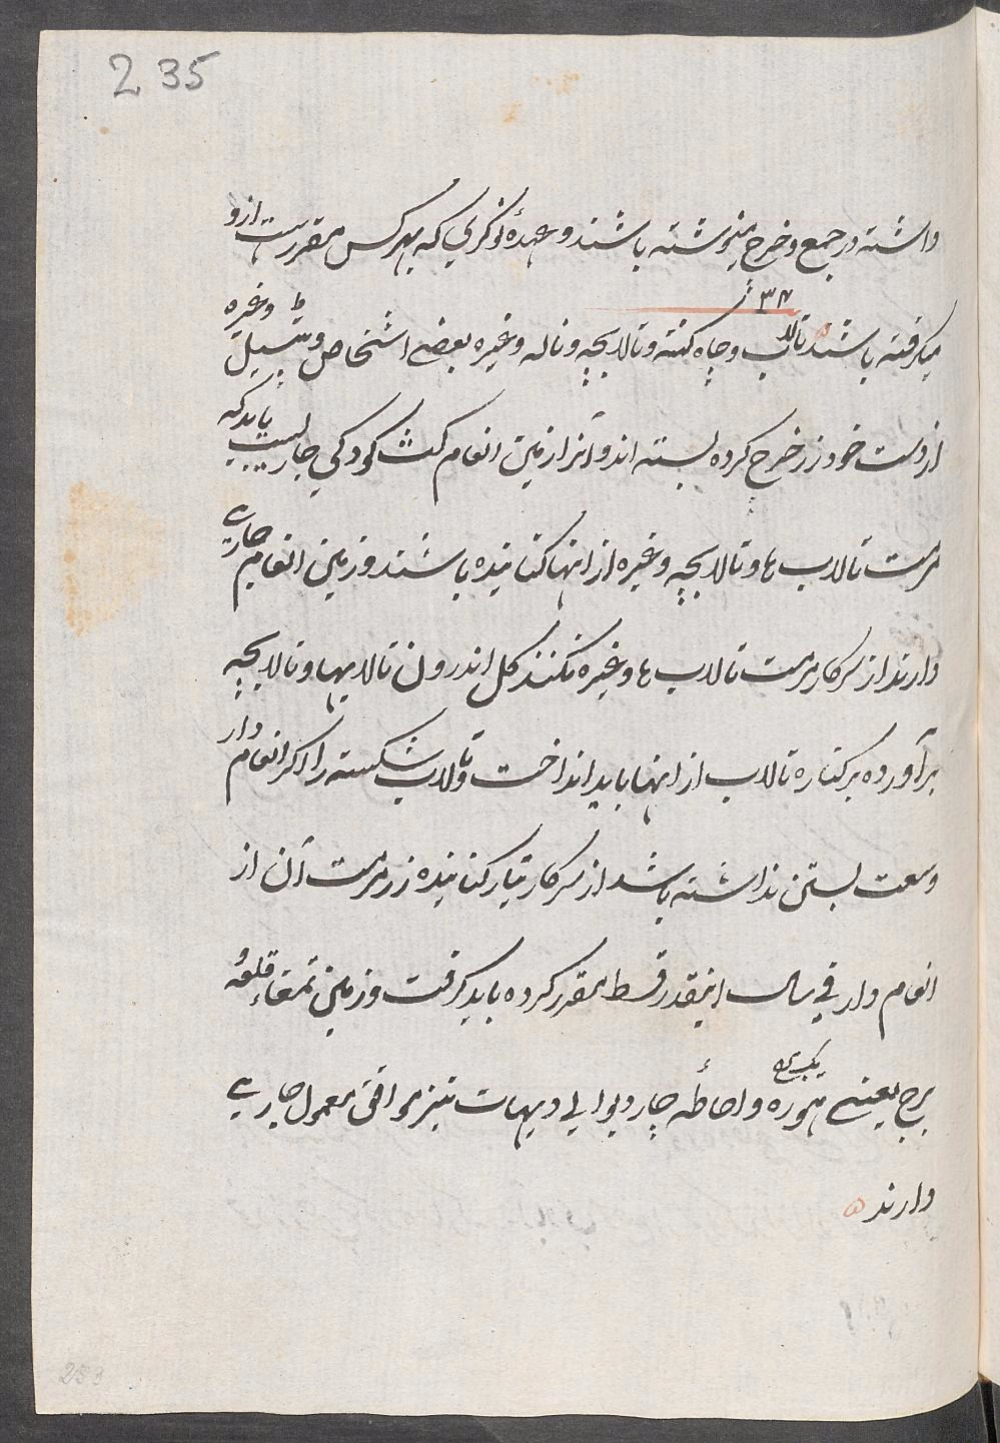 235
داشته در جمع و خرج مینوشته باشند و عهدهٔ نوکری که بهر کس مقررست ازو
۳۴
میگرفته باشند تالاب و چاه کنته و تالابچه و ناله وغیره بعضے اشخاص و پٹیل وغیره
از دست خود زر خرج کرده بسته اند و آنرا زمین انعام کٹ کودکی جاریست باید که
مرمت تالاب ها و تالابچه وغیره از انها کنانیده باشند و زمین انعام جاری
دارند از سرکار مرمت تالاب ها وغیره نکنند گل اندرون تالابها و تالابچه
برآورده بر کناره تالاب از انها باید انداخت و تالاب شکسته را اگر انعام دار
وسعت بستن نداشته باشد از سرکار تیار کنانیده زر مرمت آن از
انعام دار فی سال اینقدر قسط مقرر کرده باید گرفت و زمین تمغاء قلعه و
برج یعنے هوره و احاطهٔ چار دیواری دیهات نیز موافق معمول جاری
دارند
233